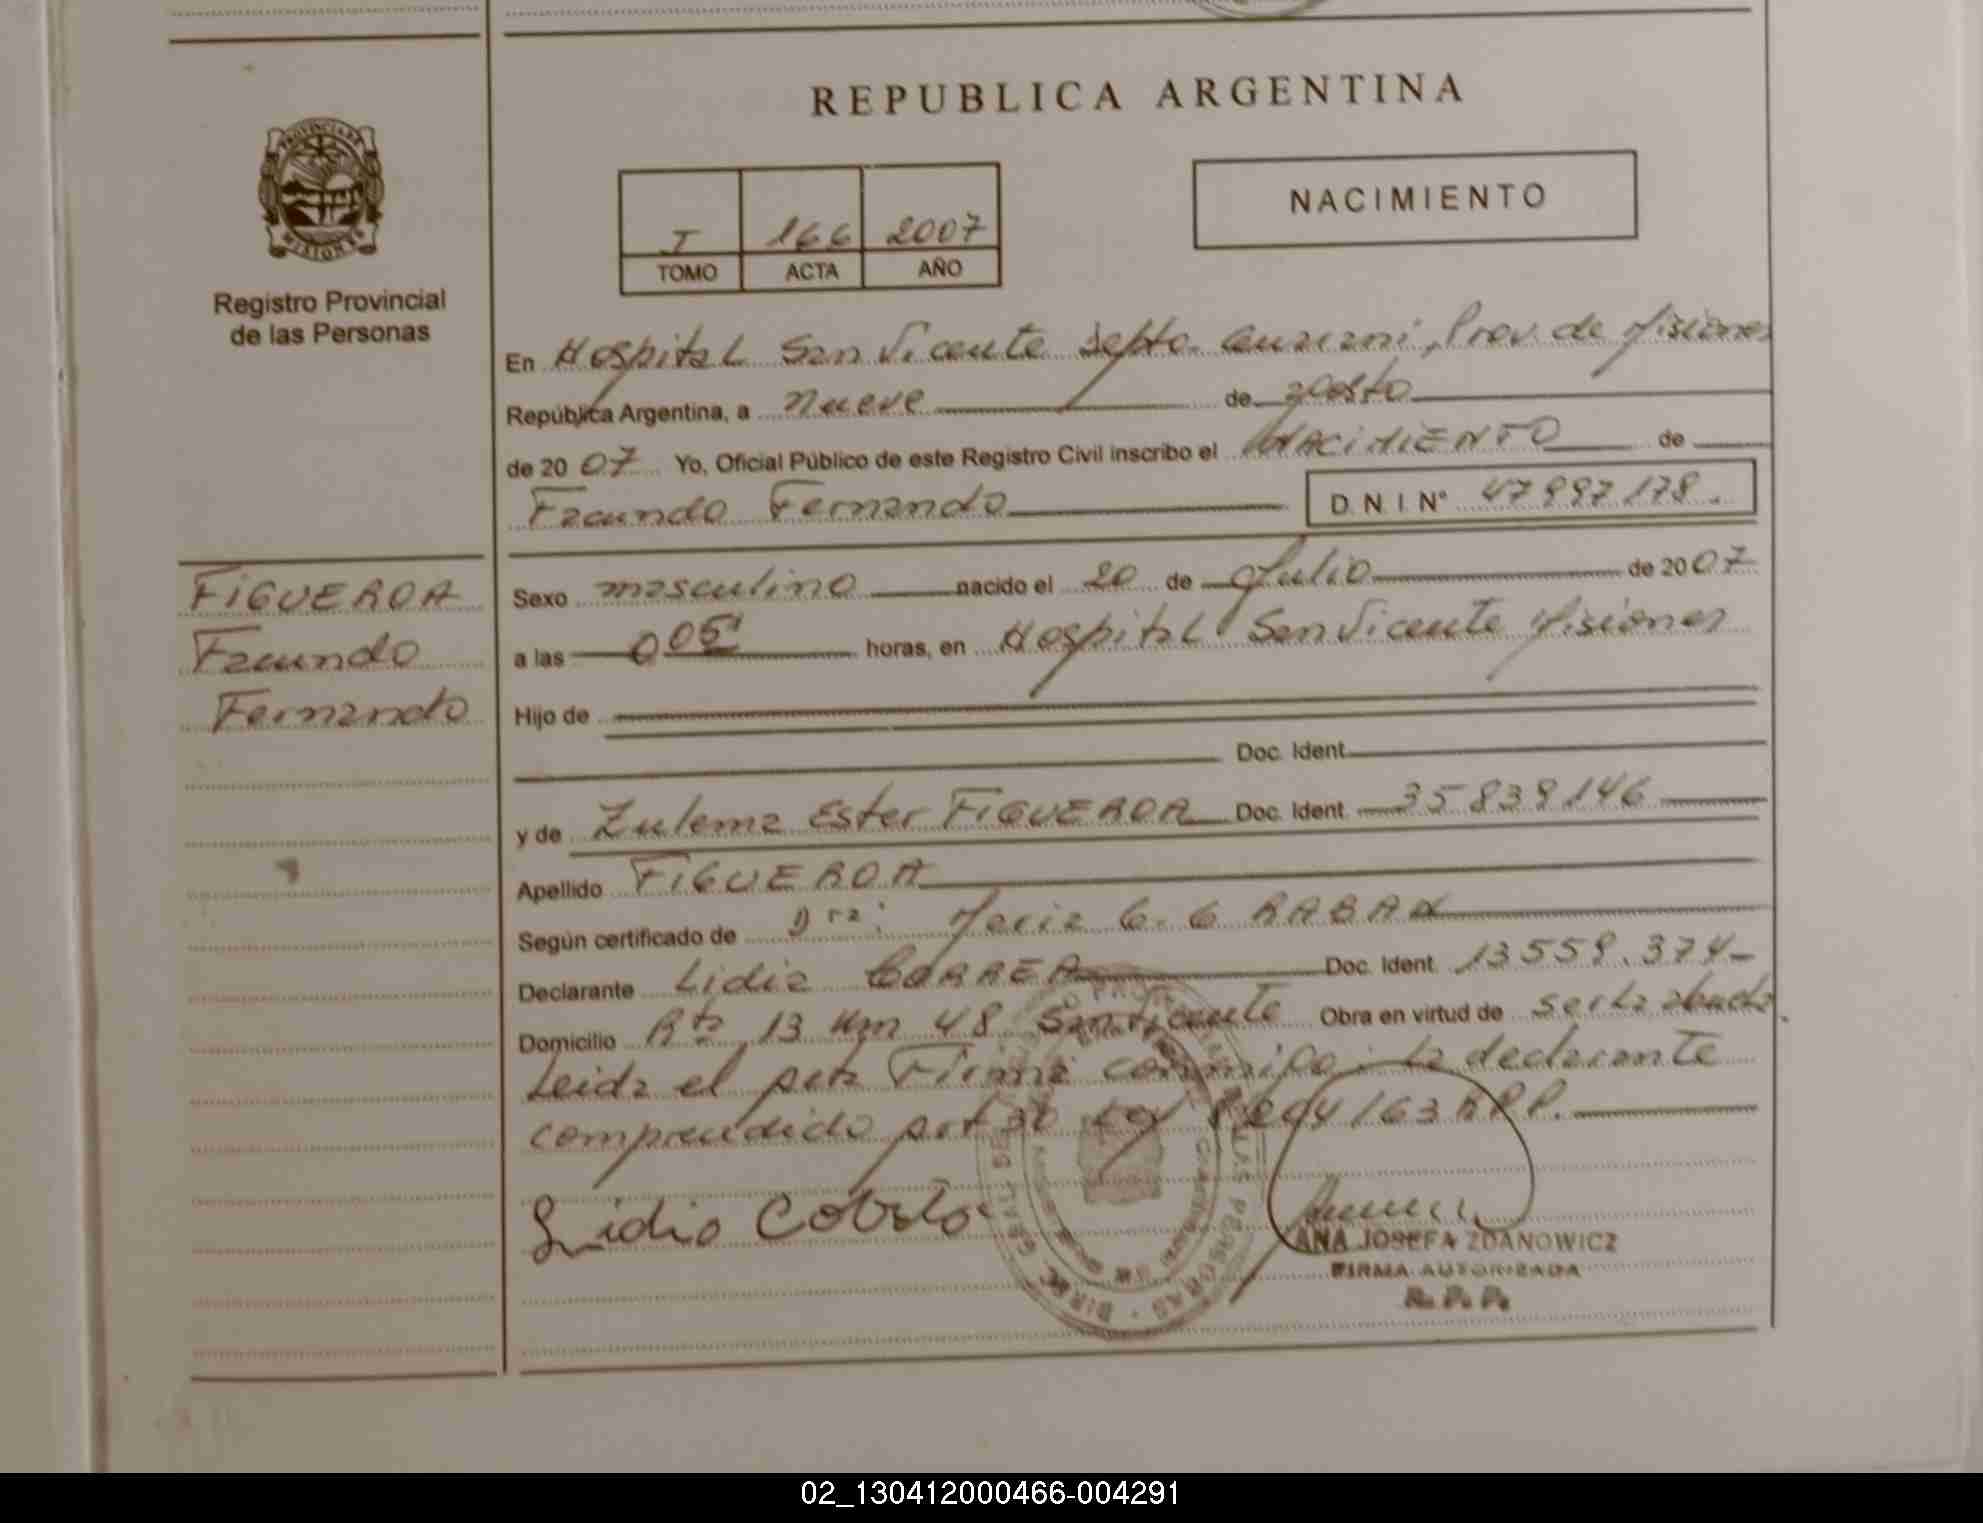 REPUBLICA ARGENTINA
PROVINCIA DE
MISIONES
Registro Provincial
de las Personas
I 166 2007
TOMO ACTA AÑO
NACIMIENTO
En Hospital San Vicente Depto. Guarani, Prov. de Misiones
República Argentina, a nueve de agosto
de 2007 Yo, Oficial Público de este Registro Civil inscribo el NACIMIENTO de
Facundo Fernando D.N.I.N° 47997178.
FIGUEROA
Facundo
Fernando
Sexo masculino nacido el 20 de Julio de 2007
a las 005' horas, en Hospital San Vicente Misiones
Hijo de
Doc. Ident.
y de Zulema Ester FIGUEROA Doc. Ident. 35839146
Apellido FIGUEROA
Según certificado de Dra: Maria G. G
Declarante Lidia CORREA Doc. Ident. 13559.374-
Domicilio Rta 13 Km 48 San Vicente Obra en virtud de ser la abuela
Leida el acta Firma conmigo la declarante
comprendido art 30 Ley 8204/63 RPP.
Lidia
ANA JOSEFA ZDANOWICZ
FIRMA AUTORIZADA
R. P. P.
02_130412000466-004291